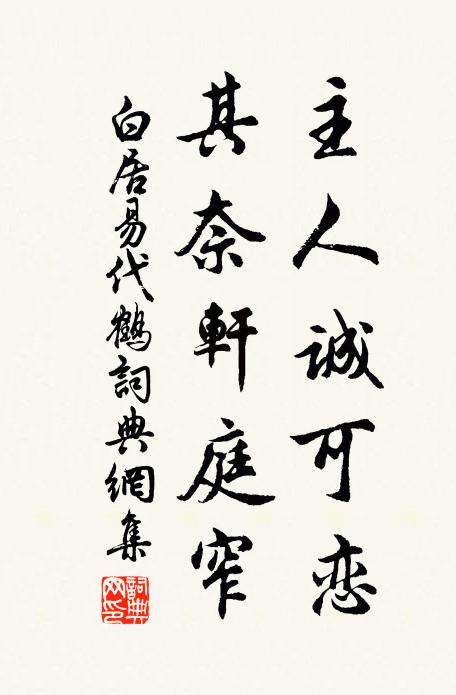 主人誠可恋
其奈軒庭窄
白居易代鶴詞典網集
詞典
网印